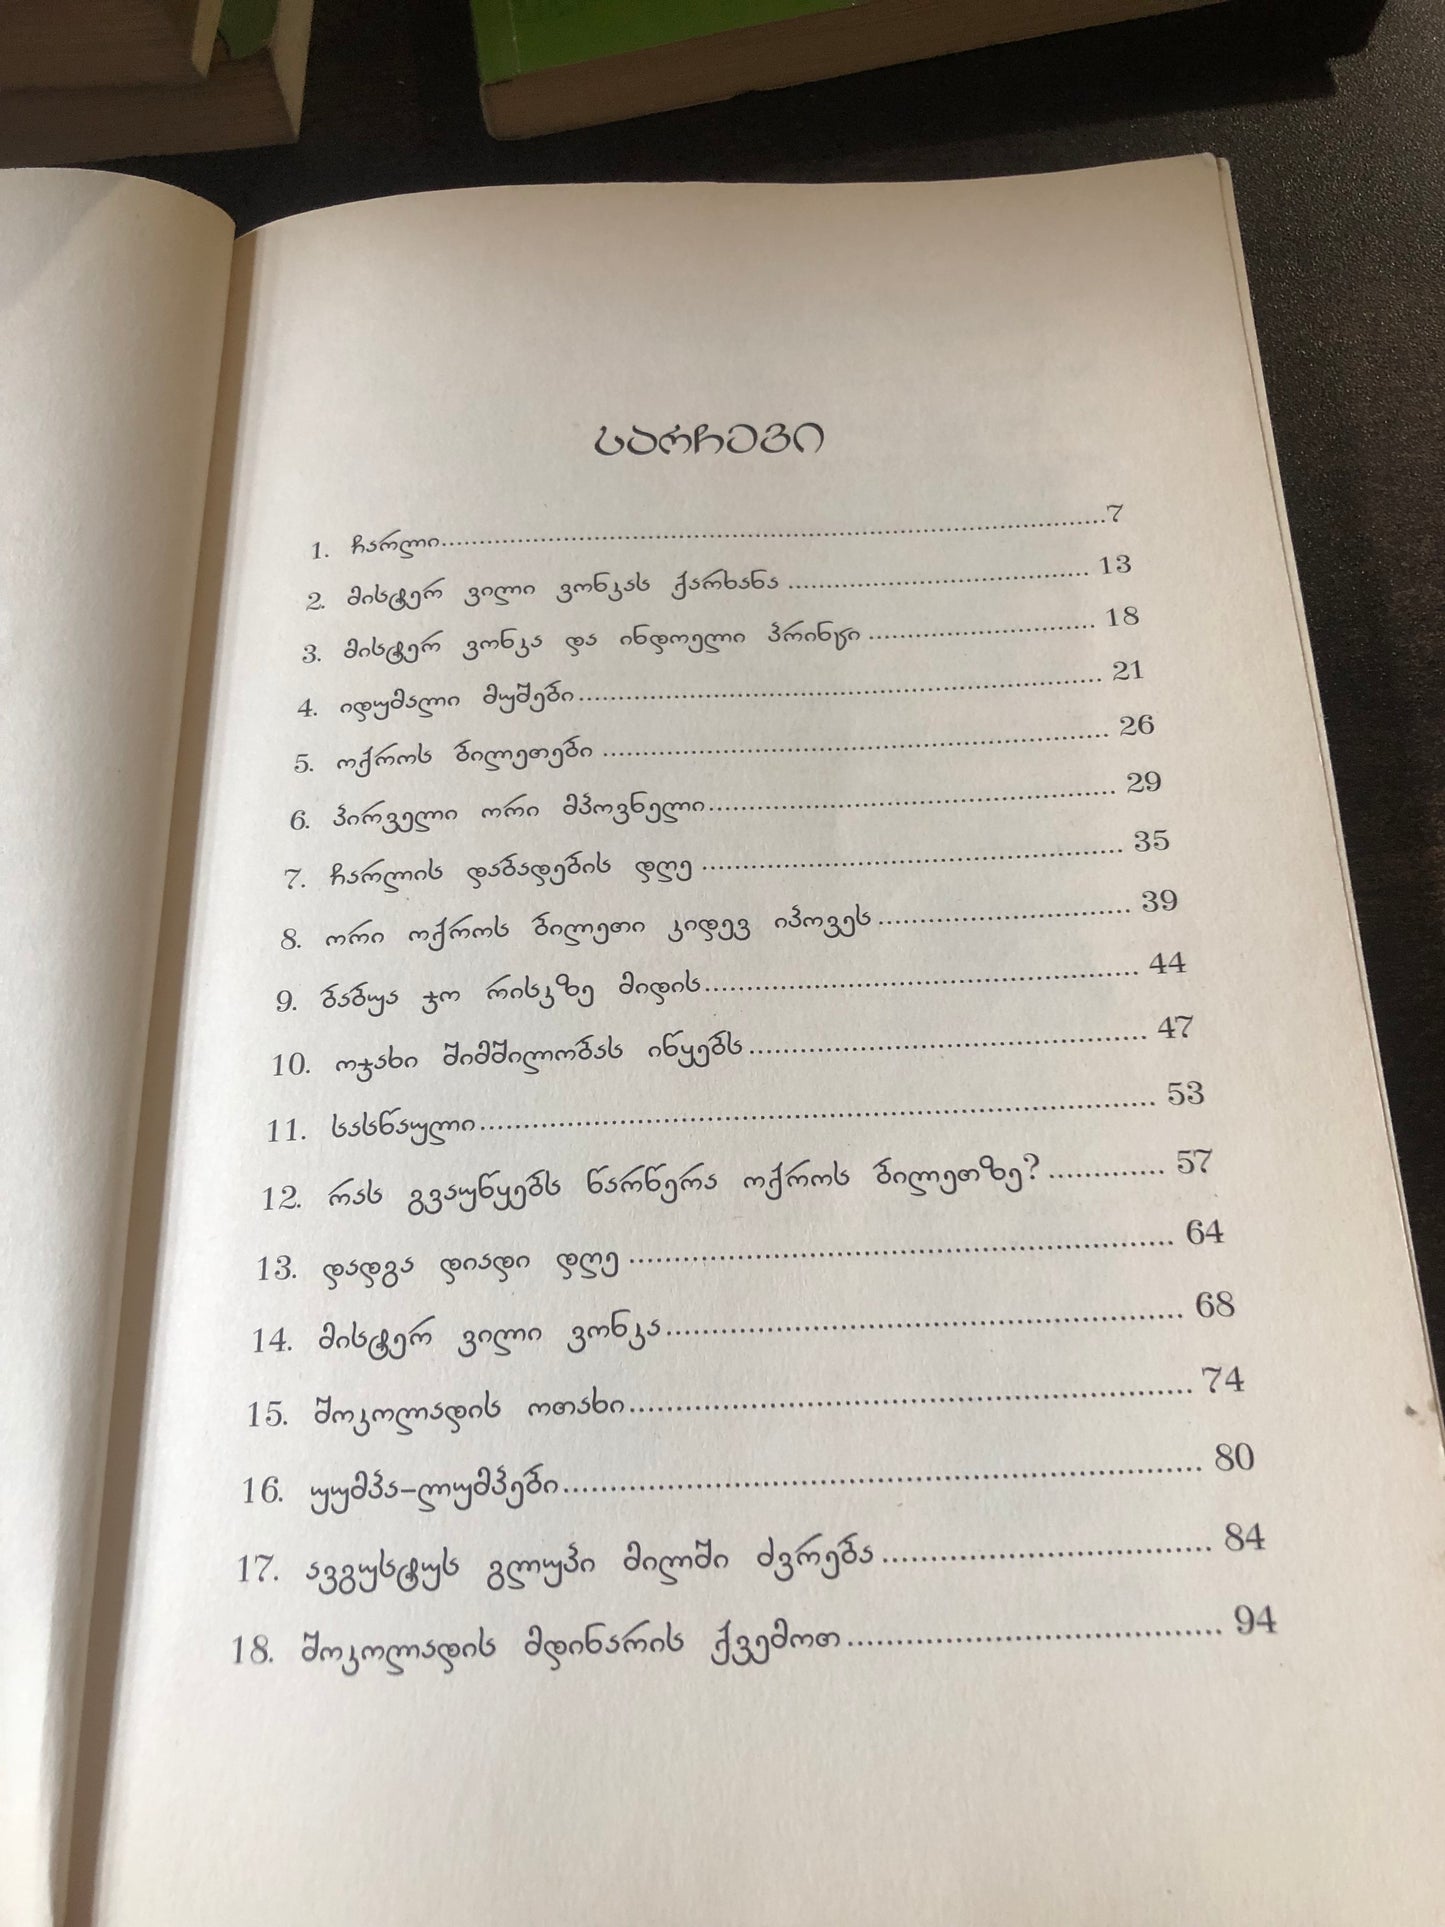 სარჩევი
1. ჩარლი....................7
2. მისტერ ვილი ვონკას ქარხანა .................... 13
3. მისტერ ვონკა და ინდოელი პრინცი .................... 18
4. იდუმალი მუშები.................... 21
5. ოქროს ბილეთები .................... 26
6. პირველი ორი მპოვნელი.................... 29
7. ჩარლის დაბადების დღე .................... 35
8. ორი ოქროს ბილეთი კიდევ იპოვეს.................... 39
9. ბაბუა ჯო რისკზე მიდის.................... 44
10. ოჯახი შიმშილობას იწყებს.................... 47
11. სასწაული.................... 53
12. რას გვაუწყებს წარწერა ოქროს ბილეთზე?............. 57
13. დადგა დიადი დღე .................... 64
14. მისტერ ვილი ვონკა.................... 68
15. შოკოლადის ოთახი.................... 74
16. უუმპა-ლუმპები.................... 80
17. ავგუსტუს გლუპი მილში ძვრება.................... 84
18. შოკოლადის მდინარის ქვემოთ.................... 94